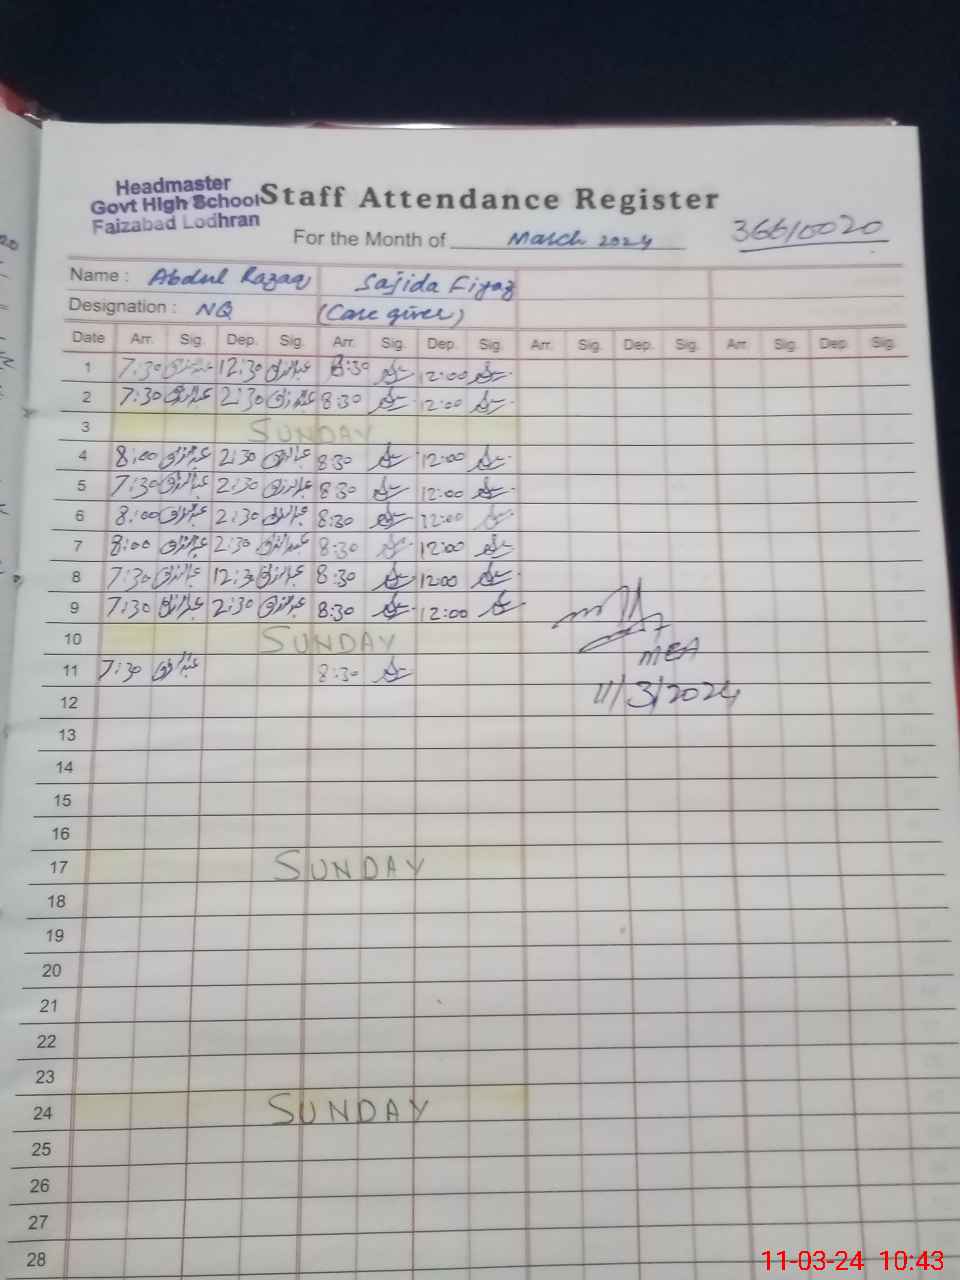 Headmaster
Govt High School
Faizabad Lodhran
Staff Attendance Register
For the Month of March 2024
36610020
Name : Abdul Razaq Sajida Fiyaz
Designation : NQ (Care giver)
Date Arr. Sig. Dep. Sig. Arr. Sig. Dep. Sig. Arr. Sig. Dep. Sig. Arr. Sig. Dep. Sig.
1 7:30 عبدالرزاق 12:30 عبدالرزاق 8:30 12:00
2 7:30 عبدالرزاق 2:30 عبدالرزاق 8:30 12:00
3 SUNDAY
4 8:00 عبدالرزاق 2:30 عبدالرزاق 8:30 12:00
5 7:30 عبدالرزاق 2:30 عبدالرزاق 8:30 12:00
6 8:00 عبدالرزاق 2:30 عبدالرزاق 8:30 12:00
7 8:00 عبدالرزاق 2:30 عبدالرزاق 8:30 12:00
8 7:30 عبدالرزاق 12:3 عبدالرزاق 8:30 12:00
9 7:30 عبدالرزاق 2:30 عبدالرزاق 8:30 12:00
10 SUNDAY
MEA
11 7:30 عبدالرزاق 8:30
11/3/2024
12
13
14
15
16
17 SUNDAY
18
19
20
21
22
23
24 SUNDAY
25
26
27
28
11-03-24 10:43